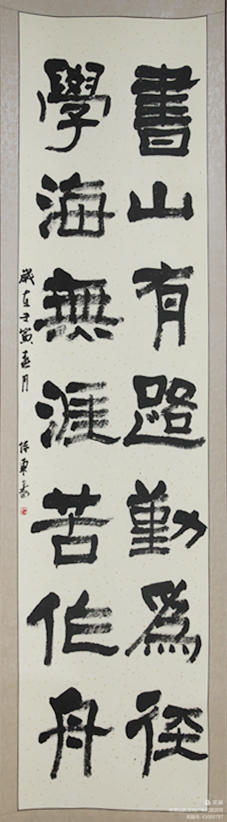 書山有路勤為徑
學海無涯苦作舟
歲在壬寅
月